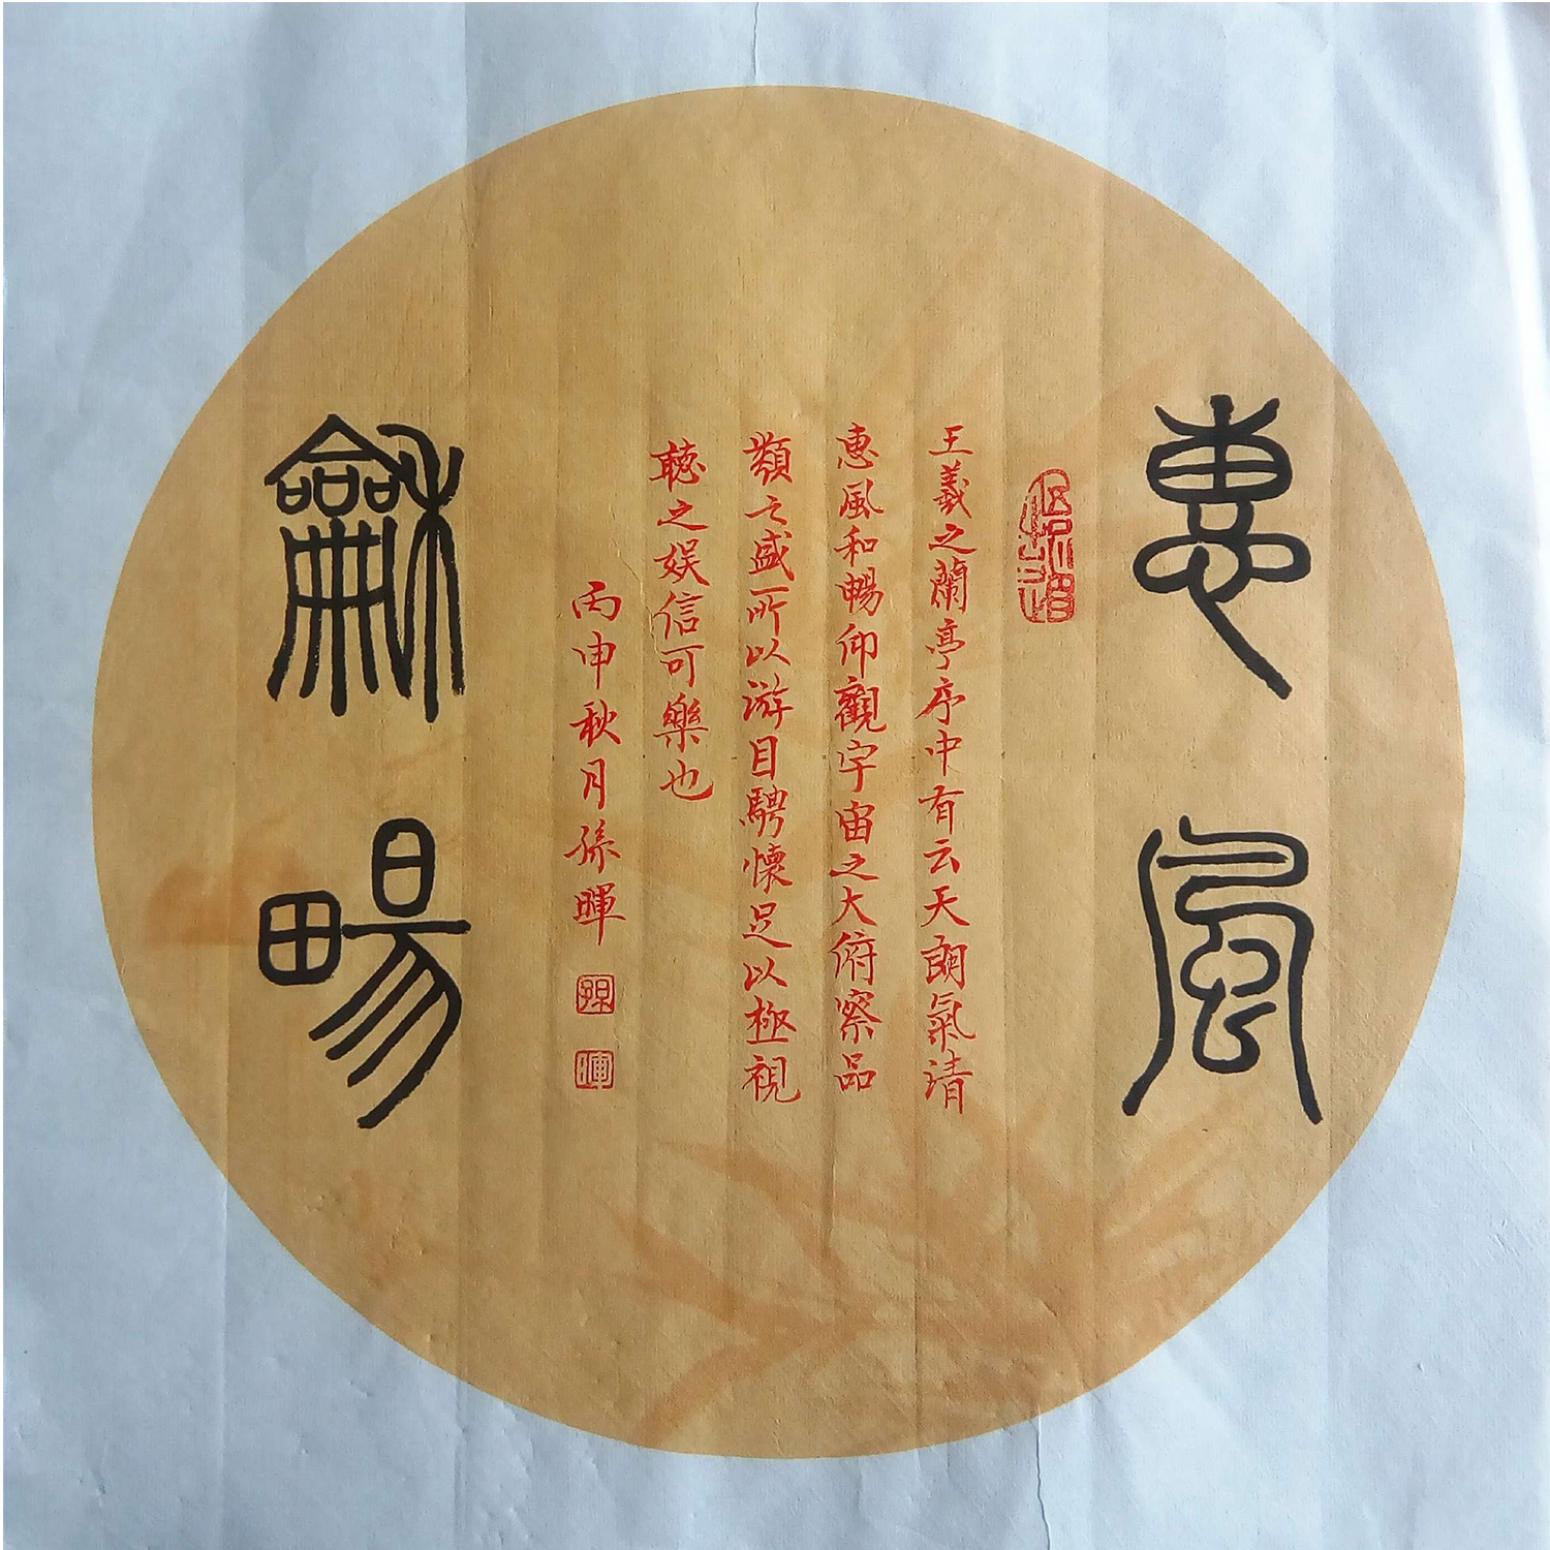 惠風
龢暢
王羲之蘭亭序中有云天朗氣清
惠風和暢仰觀宇宙之大俯察品
類之盛所以游目騁懷足以極視
聽之娱信可樂也
丙申秋月孫暉
孫
暉